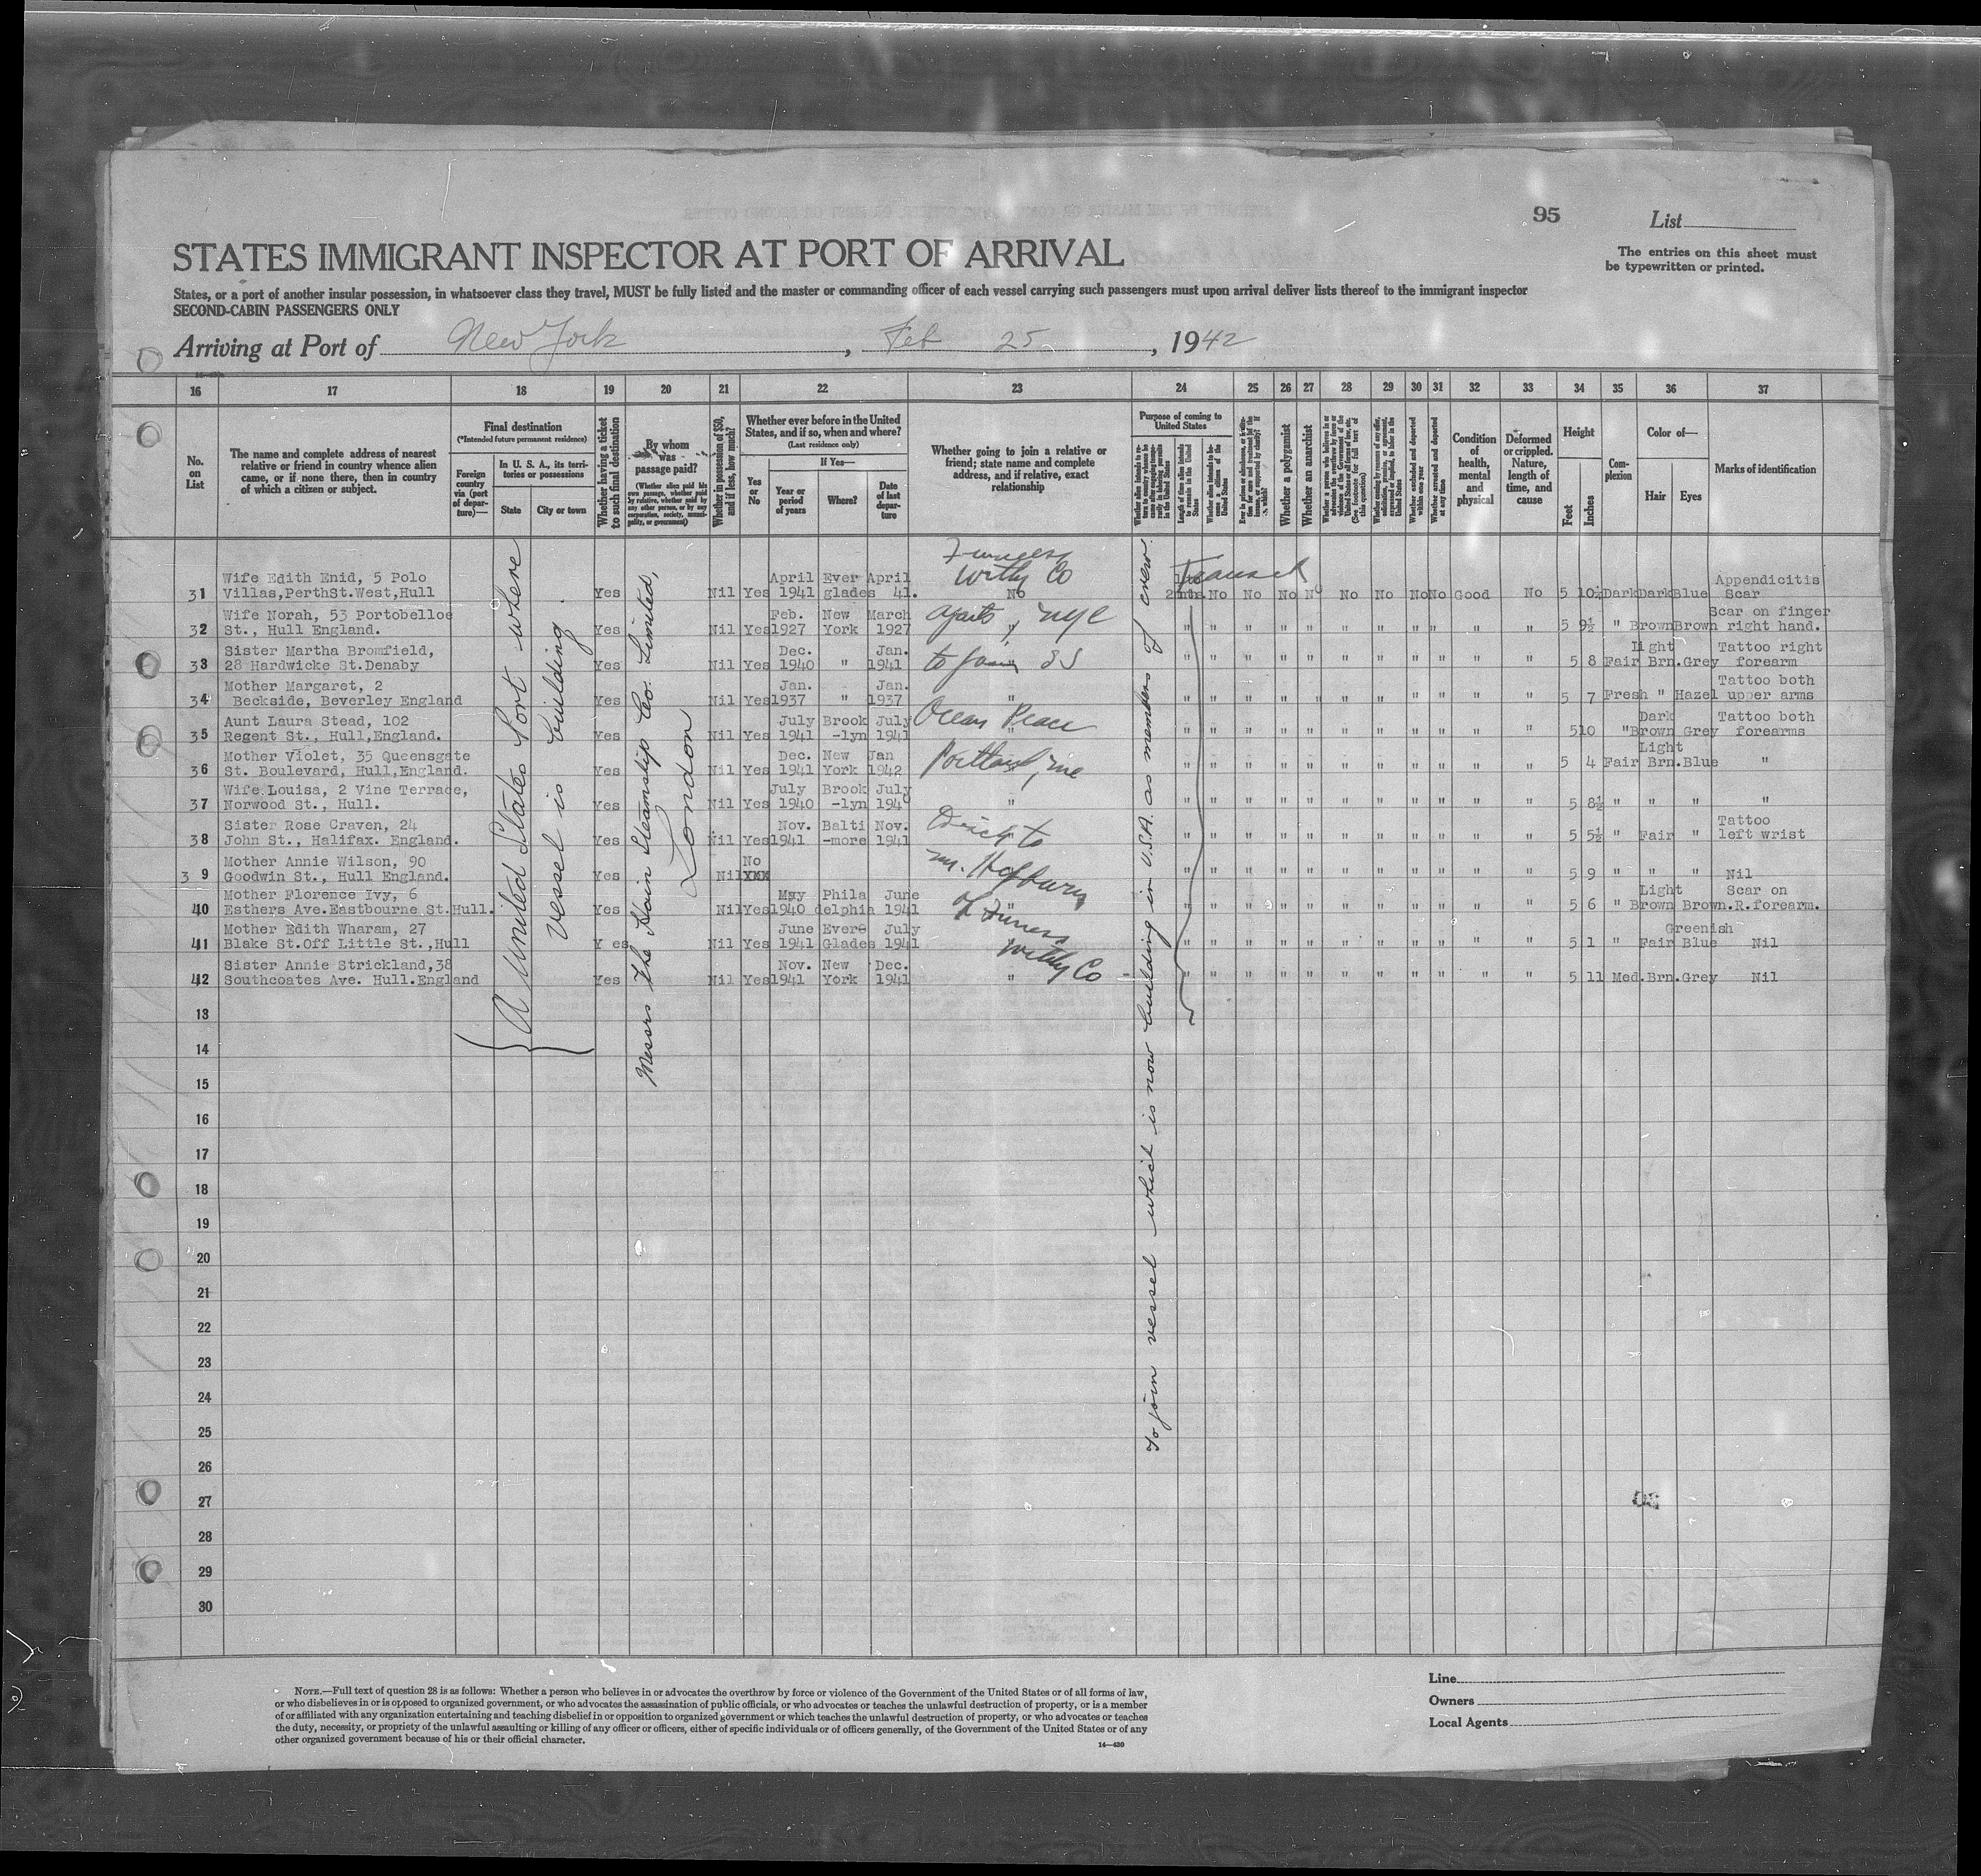 95
List
The entries on this sheet must
be typewritten or printed.
STATES IMMIGRANT INSPECTOR AT PORT OF ARRIVAL
States, or a port of another insular possession, in whatsoever class they travel, MUST be fully listed and the master or commanding officer of each vessel carrying such passengers must upon arrival deliver lists thereof to the immigrant inspector
SECOND-CABIN PASSENGERS ONLY
Arriving at Port of New York, Feb 25, 1942
16 17 18 19 20 21 22 23 24 25 26 27 28 29 30 31 32 33 34 35 36 37
No. on List
The name and complete address of nearest relative or friend in country whence alien came, or if none there, then in country of which a citizen or subject.
Final destination
(*Intended future permanent residence)
Foreign country via (port of departure)—
In U. S. A., its territories or possessions
State
City or town
Whether having a ticket to such final destination
By whom was passage paid?
(Whether alien paid his own passage, whether paid by relative, whether paid by any other person, or by any corporation, society, municipality, or government)
Whether in possession of $50, and if less, how much?
Whether ever before in the United States, and if so, when and where?
(Last residence only)
Yes or No
If Yes—
Year or period of years
Where?
Date of last departure
Whether going to join a relative or friend; state name and complete address, and if relative, exact relationship
Purpose of coming to United States
Length of time alien intends to remain in the United States
Whether a polygamist
Whether an anarchist
Whether arrested and deported at any time
Condition of health, mental and physical
Deformed or crippled. Nature, length of time, and cause
Height
Feet
Inches
Complexion
Color of—
Hair
Eyes
Marks of identification
31 Wife Edith Enid, 5 Polo Villas,PerthSt.West,Hull Yes Nil Yes April 1941 Ever glades April 41. No 2mths. No No No No No No No No Good No 5 10½ Dark Dark Blue Appendicitis Scar
32 Wife Norah, 53 Portobelloe St., Hull England. Yes Nil Yes Feb. 1927 New York March 1927 " " " " " " " " " " " 5 9½ " Brown Brown Scar on finger right hand.
33 Sister Martha Bromfield, 28 Hardwicke St.Denaby Yes Nil Yes Dec. 1940 " Jan. 1941 " " " " " " " " " " 5 8 Fair Light Brn. Grey Tattoo right forearm
34 Mother Margaret, 2 Beckside, Beverley England Yes Nil Yes Jan. 1937 " Jan. 1937 " " " " " " " " " " " 5 7 Fresh " Hazel Tattoo both upper arms
35 Aunt Laura Stead, 102 Regent St., Hull,England. Yes Nil Yes July 1941 Brook -lyn July 1941 " " " " " " " " " " " 5 10 " Dark Brown Grey Tattoo both forearms
36 Mother Violet, 35 Queensgate St. Boulevard, Hull,England. Yes Nil Yes Dec. 1941 New York Jan 1942 " " " " " " " " " " " 5 4 Fair Light Brn. Blue "
37 Wife.Louisa, 2 Vine Terrace, Norwood St., Hull. Yes Nil Yes July 1940 Brook -lyn July 1940 " " " " " " " " " " " 5 8½ " " " "
38 Sister Rose Craven, 24 John St., Halifax. England. Yes Nil Yes Nov. 1941 Balti -more Nov. 1941 " " " " " " " " " " " 5 5½ " Fair " Tattoo left wrist
39 Mother Annie Wilson, 90 Goodwin St., Hull England. Yes Nil No XXX " " " " " " " " " " 5 9 " " " Nil
40 Mother Florence Ivy, 6 Esthers Ave.Eastbourne St.Hull. Yes Nil Yes May 1940 Phila delphia June 1941 " " " " " " " " " " " 5 6 " Light Brown Brown. Scar on R.forearm.
41 Mother Edith Wharam, 27 Blake St.Off Little St.,Hull Yes Nil Yes June 1941 Ever Glades July 1941 " " " " " " " " " " 5 1 " Fair Greenish Blue Nil
42 Sister Annie Strickland,38 Southcoates Ave. Hull.England Yes Nil Yes Nov. 1941 New York Dec. 1941 " " " " " " " " " " " 5 11 Med. Brn. Grey Nil
A United States Port where
vessel is building.
Messrs The Hain Steamship Co. Limited,
London
Furness
Withy Co
agents, NYC
to join SS
Ocean Peace
Portland, Me
of Furness
Withy Co
To join vessel which is now building in U.S.A. as members of crew.
Transit
13
14
15
16
17
18
19
20
21
22
23
24
25
26
27
28
29
30
NOTE.—Full text of question 28 is as follows: Whether a person who believes in or advocates the overthrow by force or violence of the Government of the United States or of all forms of law,
or who disbelieves in or is opposed to organized government, or who advocates the assassination of public officials, or who advocates or teaches the unlawful destruction of property, or is a member
of or affiliated with any organization entertaining and teaching disbelief in or opposition to organized government or which teaches the unlawful destruction of property, or who advocates or teaches
the duty, necessity, or propriety of the unlawful assaulting or killing of any officer or officers, either of specific individuals or of officers generally, of the Government of the United States or of any
other organized government because of his or their official character.
14—430
Line
Owners
Local Agents